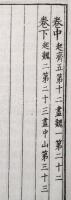 卷中 起齊五第十二盡魏一第二十二
卷下 起魏二第二十三盡中山第三十三